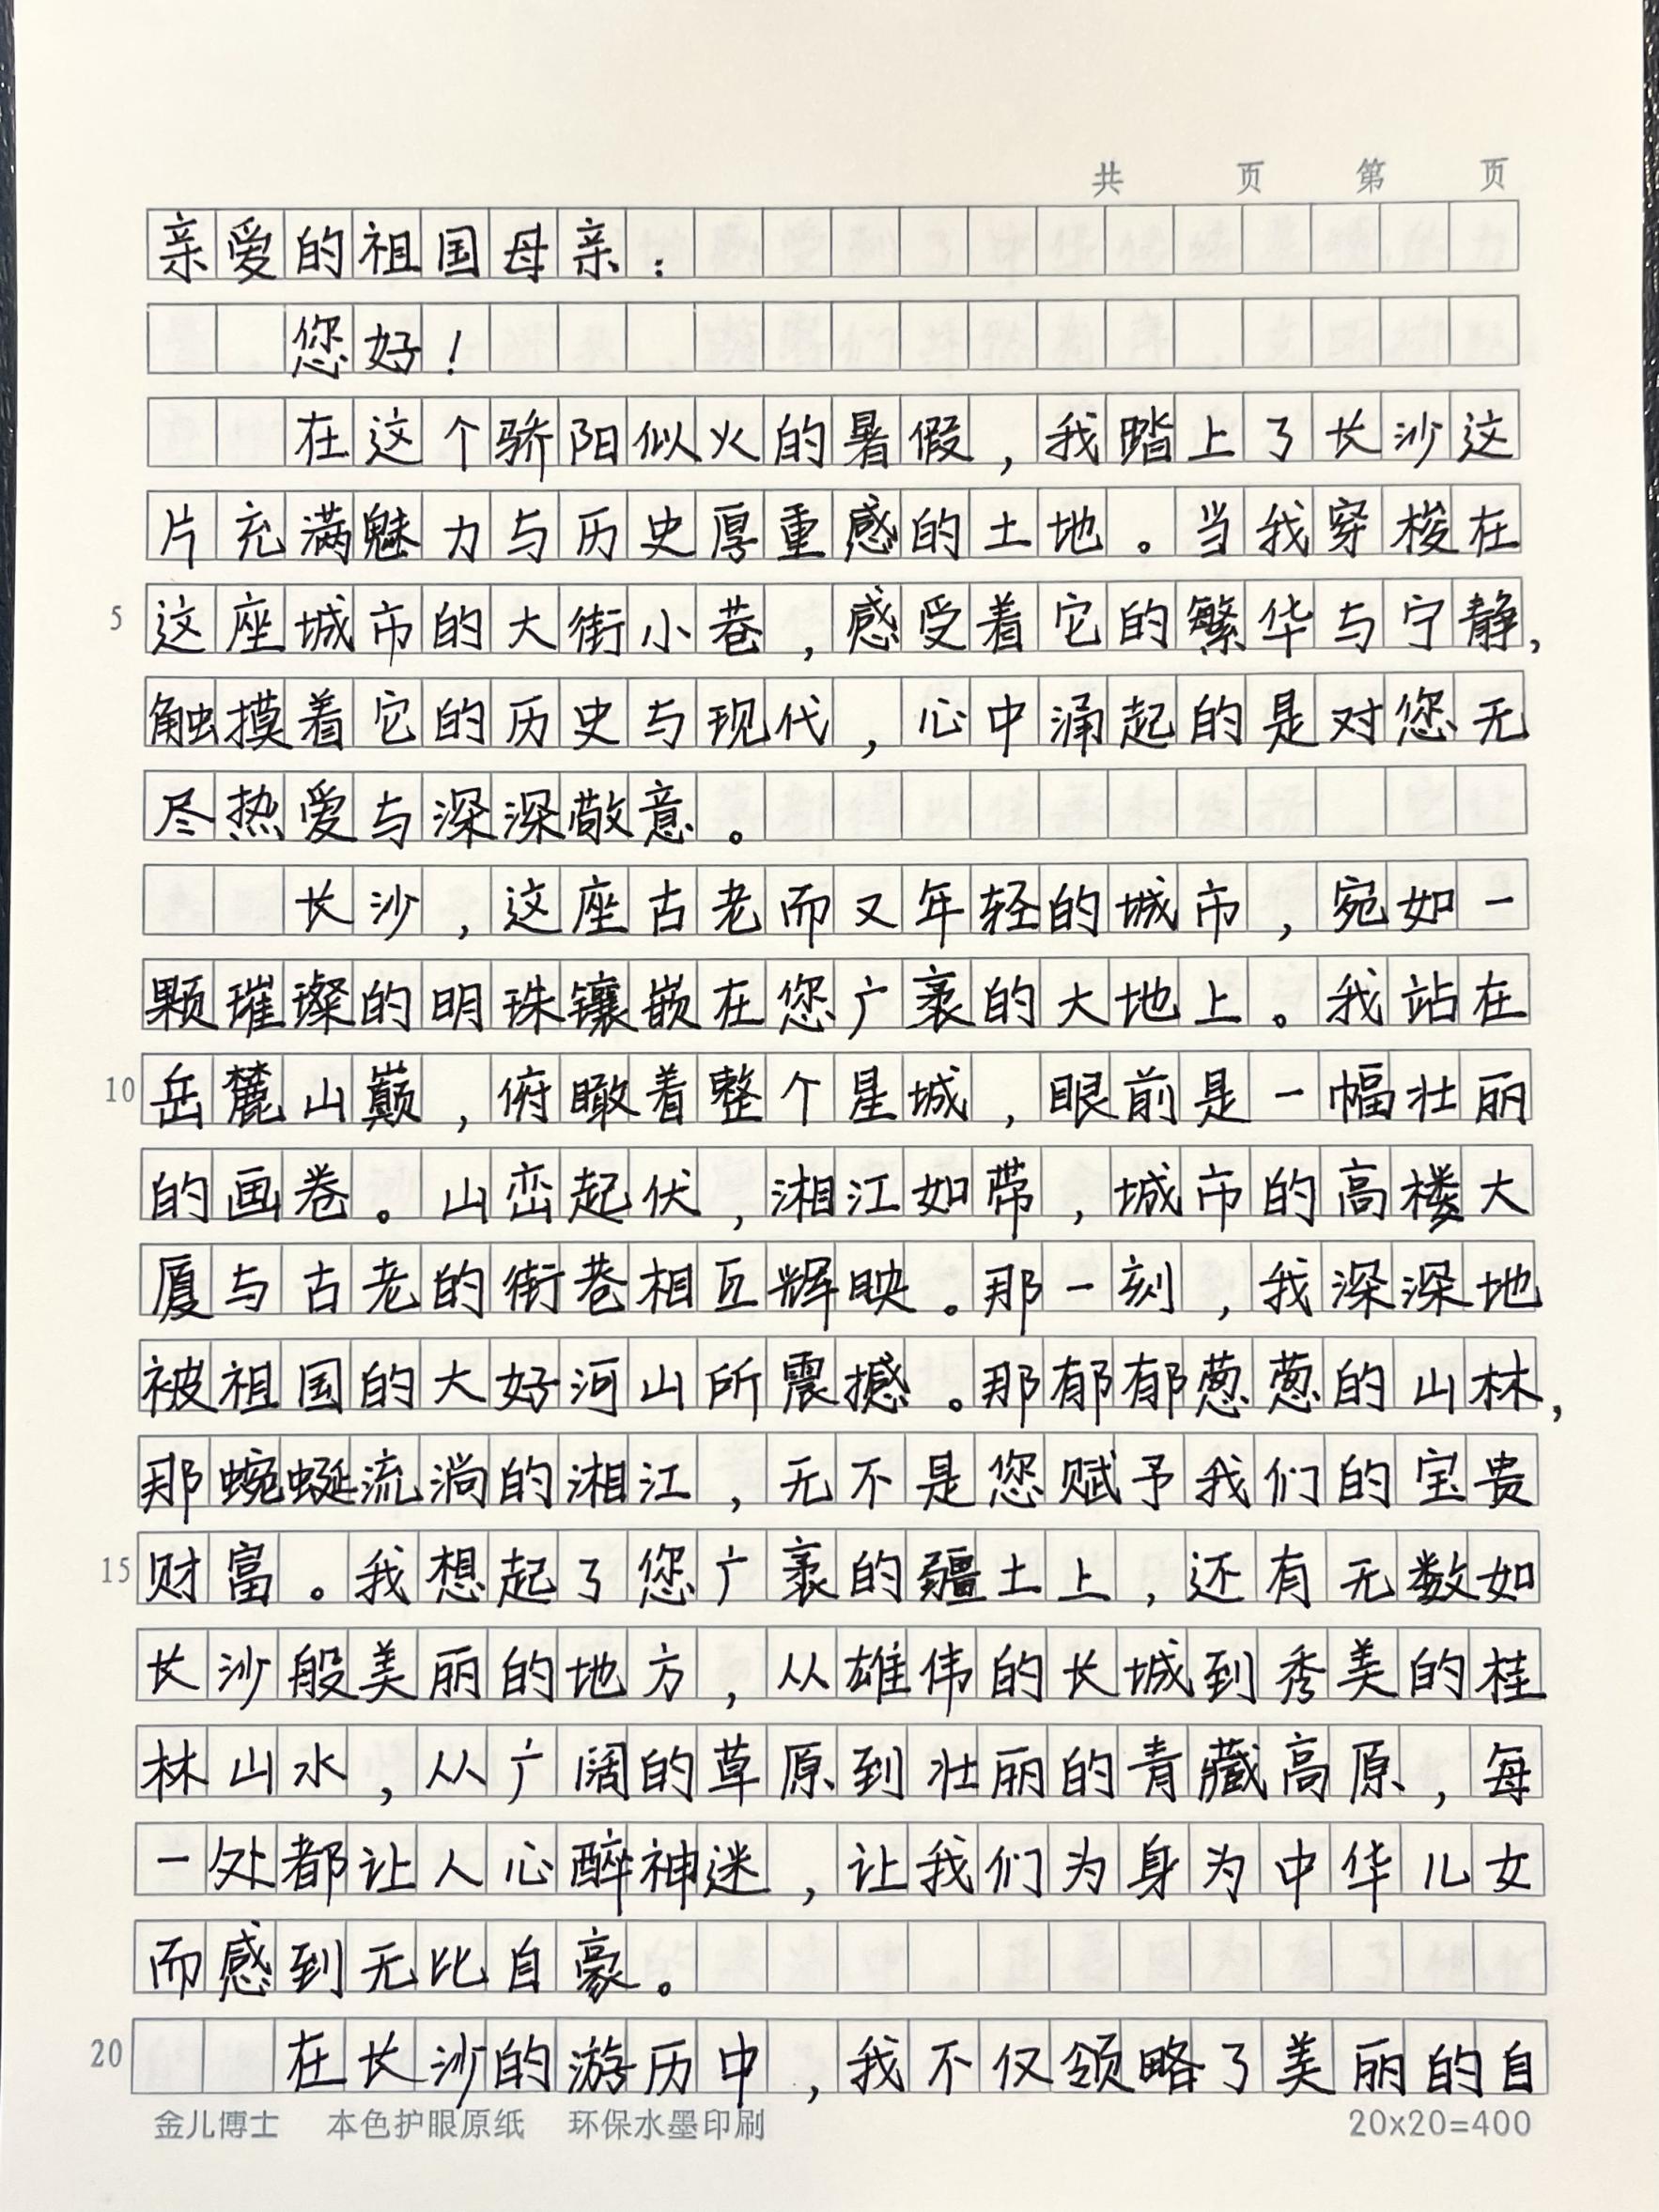 共 页 第 页
亲爱的祖国母亲：
您好！
在这个骄阳似火的暑假，我踏上了长沙这
片充满魅力与历史厚重感的土地。当我穿梭在
5 这座城市的大街小巷，感受着它的繁华与宁静，
触摸着它的历史与现代，心中涌起的是对您无
尽热爱与深深敬意。
长沙，这座古老而又年轻的城市，宛如一
颗璀璨的明珠镶嵌在您广袤的大地上。我站在
10 岳麓山巅，俯瞰着整个星城，眼前是一幅壮丽
的画卷。山峦起伏，湘江如带，城市的高楼大
厦与古老的街巷相互辉映。那一刻，我深深地
被祖国的大好河山所震撼。那郁郁葱葱的山林，
那蜿蜒流淌的湘江，无不是您赋予我们的宝贵
15 财富。我想起了您广袤的疆土上，还有无数如
长沙般美丽的地方，从雄伟的长城到秀美的桂
林山水，从广阔的草原到壮丽的青藏高原，每
一处都让人心醉神迷，让我们为身为中华儿女
而感到无比自豪。
20 在长沙的游历中，我不仅领略了美丽的自
金儿博士 本色护眼原纸 环保水墨印刷 20x20=400